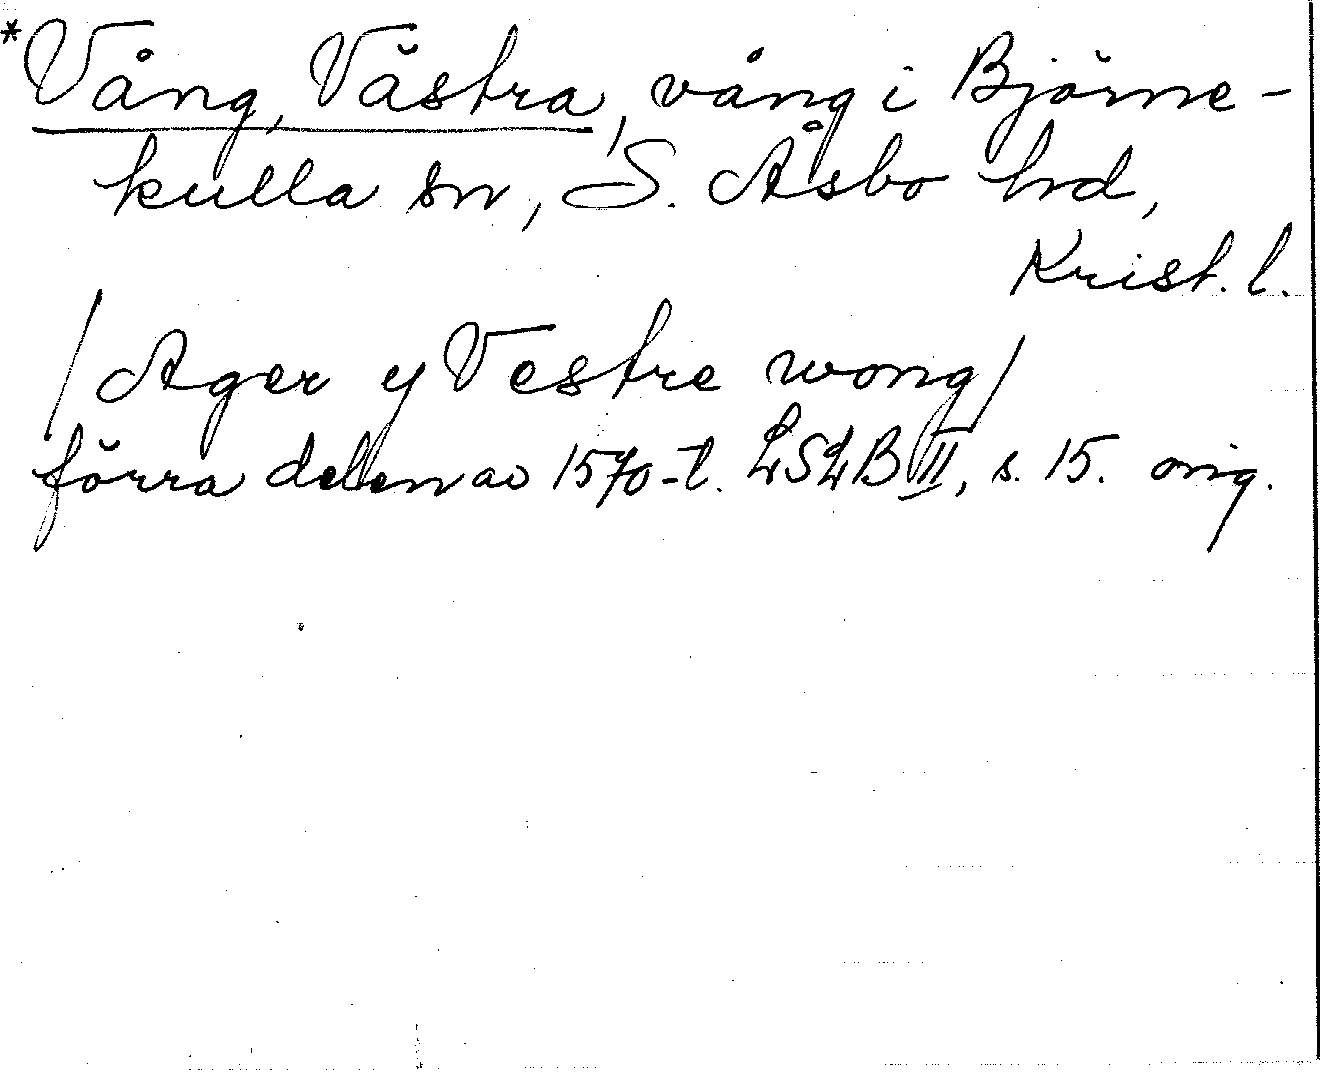 *Vång, Västra, vång i Björne-
kulla sn, S. Åsbo hd,
Krist. l.
/Ager y Vestre wong/
förra delen av 1570-t. LSLB II, s. 15. orig.